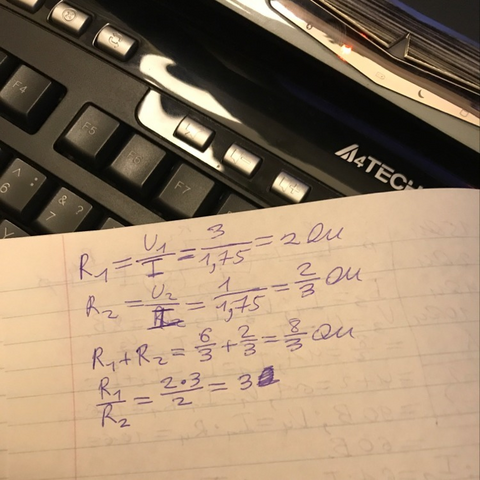 F4
F5
F6
F7
^ :
6
& ?
7
A4TECH
R₁ = U₁/I = 3/1,75 = 2 Ом
R₂ = U₂/I = 1/1,75 = 2/3 Ом
R₁ + R₂ = 6/3 + 2/3 = 8/3 Ом
R₁/R₂ = 2·3/2 = 3